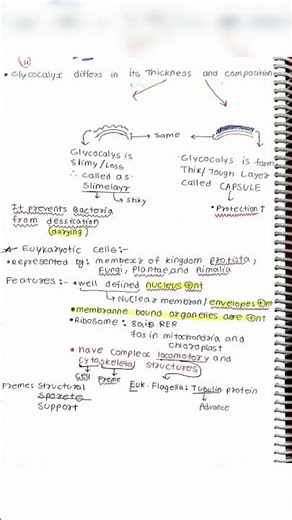 • Glycocalyx differs in its Thickness and composition
same
Glycocalys is
Slimy/Loss
∴ called as
Slimelayr
→ stiky
Glycocalys is form
Thik/Tough Layer
called CAPSULE
• Protection↑
It prevents Bacteria
from dessication
(drying)
Euykaryotic cells:-
• Represented by: members of kingdom protista,
Fungi, Plantae, and Animalia
Features:- • well defined nucleus ⊕nt
→ Nuclear membran/envelopes ⊕nt
• membranne bound organelles are ⊕nt
• Ribosome: 80s RER
70s in mitochondria and
chloroplast
• have complex locomotory and
cytoskeletal structures
Cell Freme
Euk-Flagella: Tubulin protein
Advance
Freme: Structural
Support